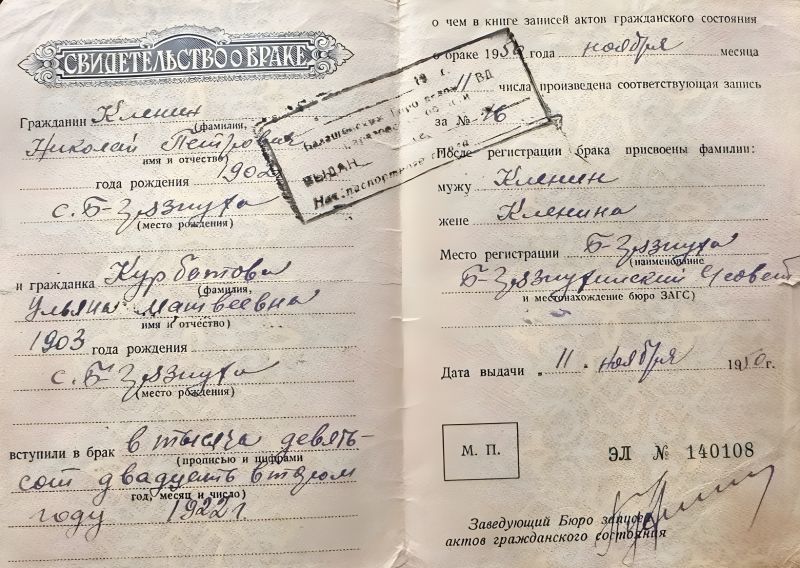 СВИДЕТЕЛЬСТВО О БРАКЕ
Гражданин Кленин
(фамилия,
Николай Петрович
имя и отчество)
года рождения 1902
с. Б-Зязнуха
(место рождения)
и гражданка Курбатова
(фамилия,
Ульяна Матвеевна
имя и отчество)
1903 года рождения
с. Б-Зязнуха
(место рождения)
вступили в брак в тысяча девять-
(прописью и цифрами
сот двадцать втором
год, месяц и число)
году 1922 г.
о чем в книге записей актов гражданского состояния
о браке 1950 года ноября месяца
11 числа произведена соответствующая запись
за № 76
После регистрации брака присвоены фамилии:
мужу Кленин
жене Кленина
Место регистрации Б-Зязнуха
(наименование
Б-Зязнухинский
и местонахождение бюро ЗАГС)
Дата выдачи „ 11 " ноября 1950 г.
М. П.
ЭЛ № 140108
Заведующий Бюро записей
актов гражданского состояния
19 г.
ВД
ВЫДАН
Нач. паспортного